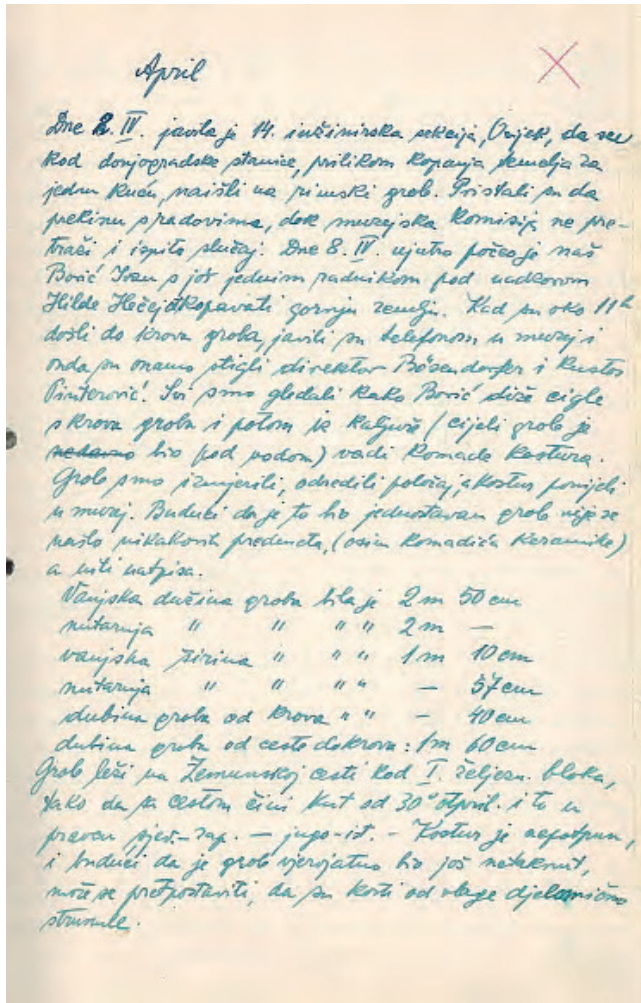 April
Dne 8. IV. javila je 14. inžinirska sekcija, Osijek, da su
kod donjogradske stanice, prilikom kopanja temelja za
jednu kuću, naišli na rimski grob. Pristali su da
prekinu s radovima, dok muzejska komisija ne pre-
traži i ispita slučaj. Dne 8. IV. ujutro počeo je naš
Borić Ivan s još jednim radnikom pod nadzorom
Hilde Hečej otkopavati gornju zemlju. Kad su oko 11h
došli do krova groba, javili su telefonom u muzej i
onda su onamo stigli direktor Bösendorfer i kustos
Pinterović. Svi smo gledali kako Borić diže cigle
s krova groba i potom iz kaljuže (cijeli grob je
nedavno bio pod vodom) vadi komade kostura.
Grob smo izmjerili, odredili položaj, a kostur ponijeli
u muzej. Budući da je to bio jednostavan grob nije se
našlo nikakovih predmeta, (osim komadića keramike)
a niti natpisa.
Vanjska dužina groba bila je 2 m 50 cm
nutarnja " " " " 2 m —
vanjska širina " " " 1 m 10 cm
nutarnja " " " " — 57 cm
dubina groba od krova " " — 40 cm
dubina groba od ceste do krova : 1 m 60 cm
Grob leži na Zemunskoj cesti kod I. željezn. bloka,
tako da sa cestom čini kut od 30° otpril. i to u
pravcu sjev.-zap. — jugo-ist. - Kostur je nepotpun,
i budući da je grob vjerojatno bio još netaknut,
može se pretpostaviti, da su kosti od vlage djelomično
strunule.